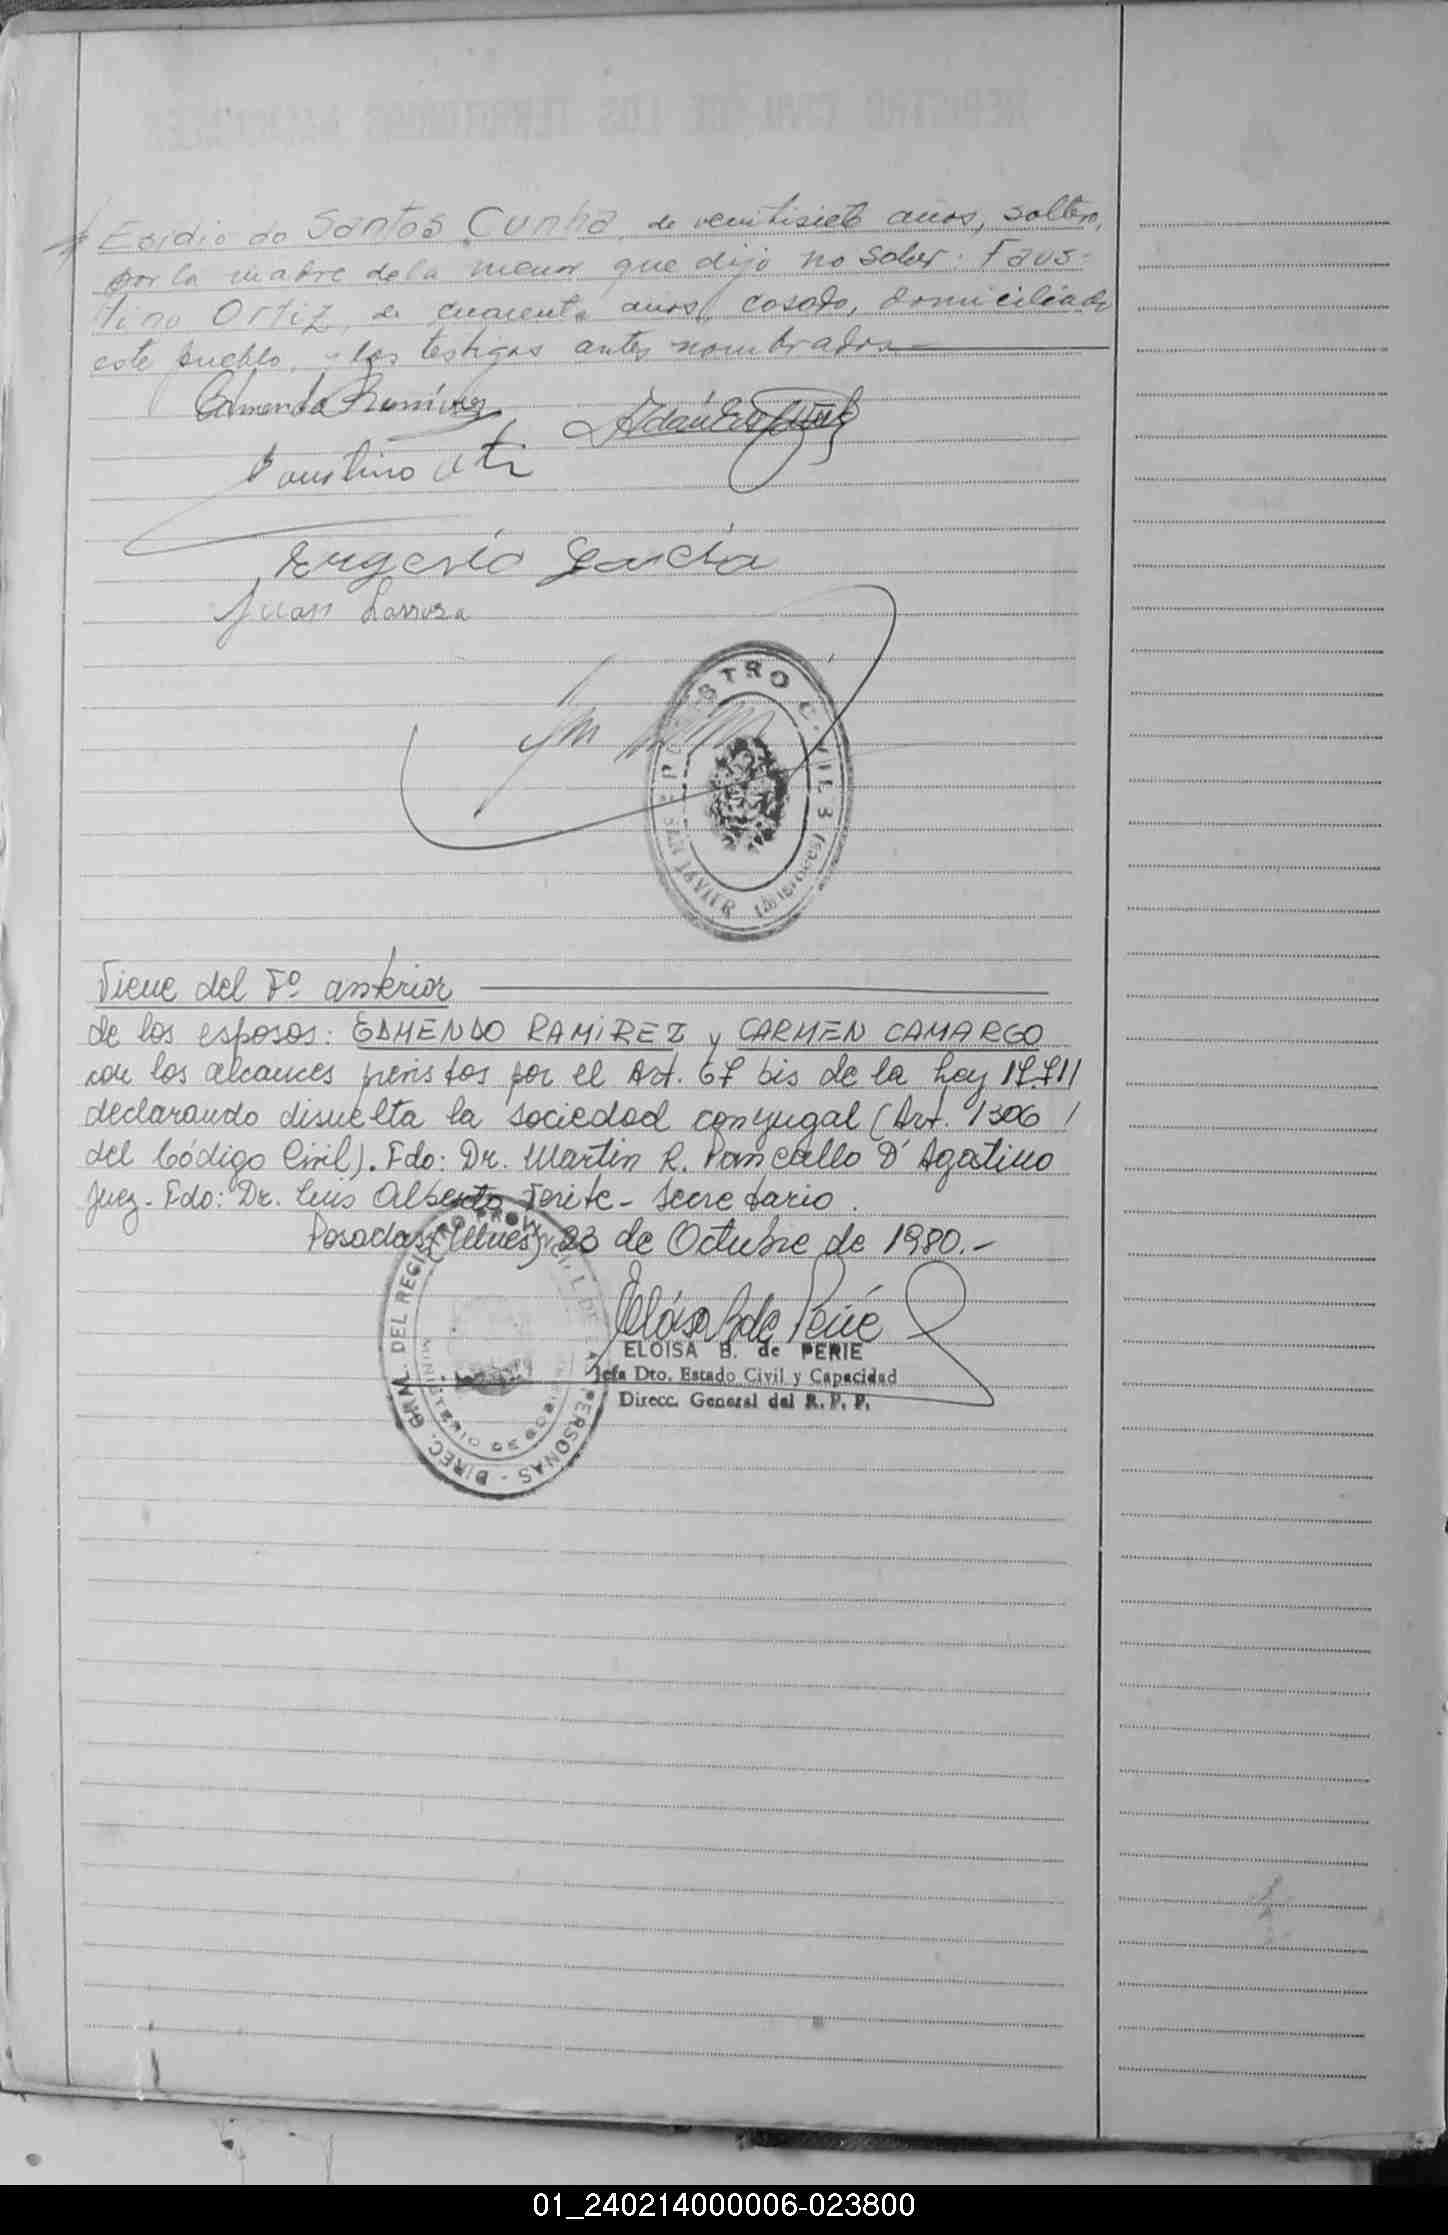 Egidio do Santos Cunha, de veintisiete años, soltero,
por la madre de la menor que dijo no saber: Faus-
tino Ortiz, de cuarenta años, casado, domiciliado
este pueblo, y los testigos antes nombrados
Edmendo Ramirez
Faustino Ortiz
Eugenio Garcia
Juan
REGISTRO CIVIL
SAN JAVIER (Misiones)
Viene del Fº anterior
de los esposos: EDMENDO RAMIREZ y CARMEN CAMARGO
con los alcances previstos por el Art. 67 bis de la Ley 17.711
declarando disuelta la sociedad conyugal (Art. 1306
del Código Civil). Fdo: Dr. Martin R. D'Agostino
Juez. Fdo: Dr. Luis Alberto - Secretario.
Posadas (Mnes) 23 de Octubre de 1980.-
DIREC. GRAL. DEL REGISTRO PROVINCIAL DE LAS PERSONAS
MINISTERIO DE GOBIERNO
Eloisa B de Perié
ELOISA B. de PERIE
Jefa Dto. Estado Civil y Capacidad
Direcc. General del R. P. P.
01_240214000006-023800